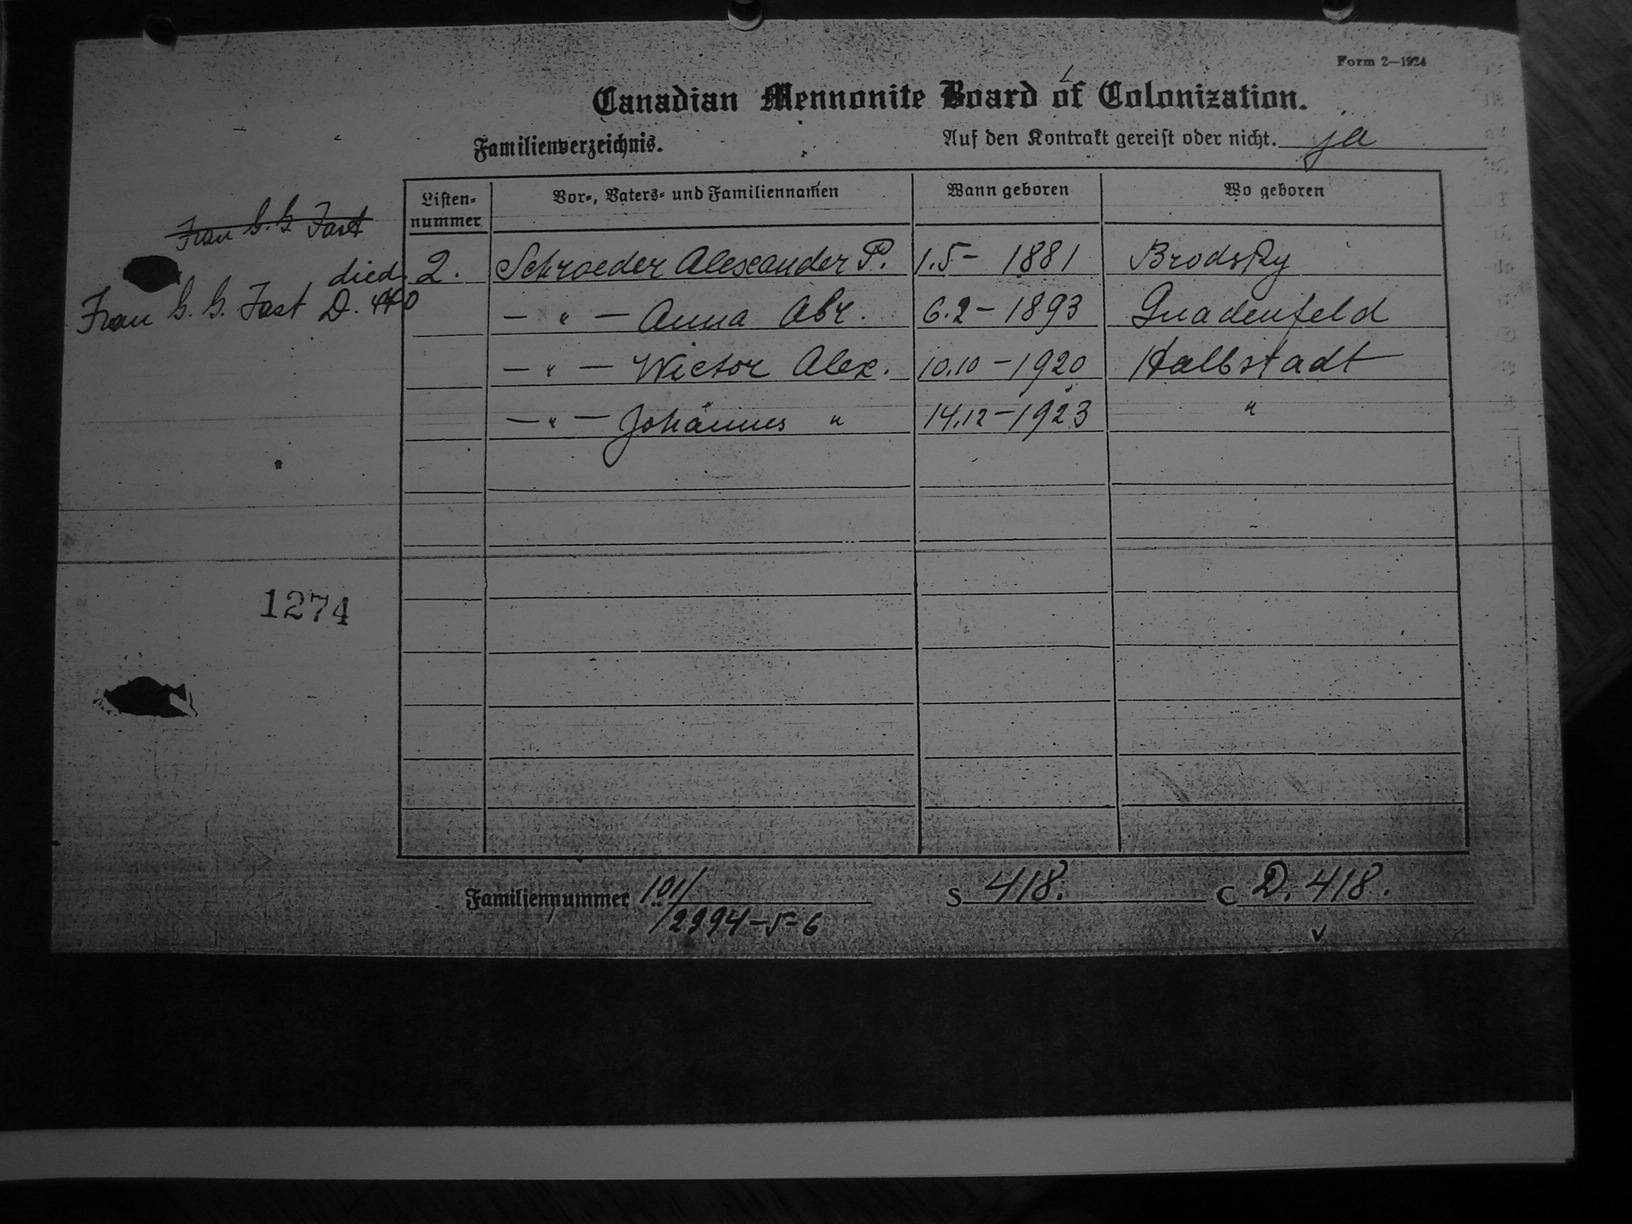 Form 2—1924
Canadian Mennonite Board of Colonization.
Familienverzeichnis.
Auf den Kontrakt gereist oder nicht. ja
Listen-nummer
Vor-, Vaters- und Familiennamen
Wann geboren
Wo geboren
Frau G. G. Fast
died
2. Schroeder Alexander P. 1.5 - 1881 Brodsky
Frau G. G. Fast D. 440
— " — Anna Abr. 6.2 - 1893 Gnadenfeld
— " — Wictor Alex. 10.10 - 1920 Halbstadt
— " — Johannes " 14.12 - 1923 "
1274
Familiennummer 101/
S 418.
C D. 418.
12994-5-6